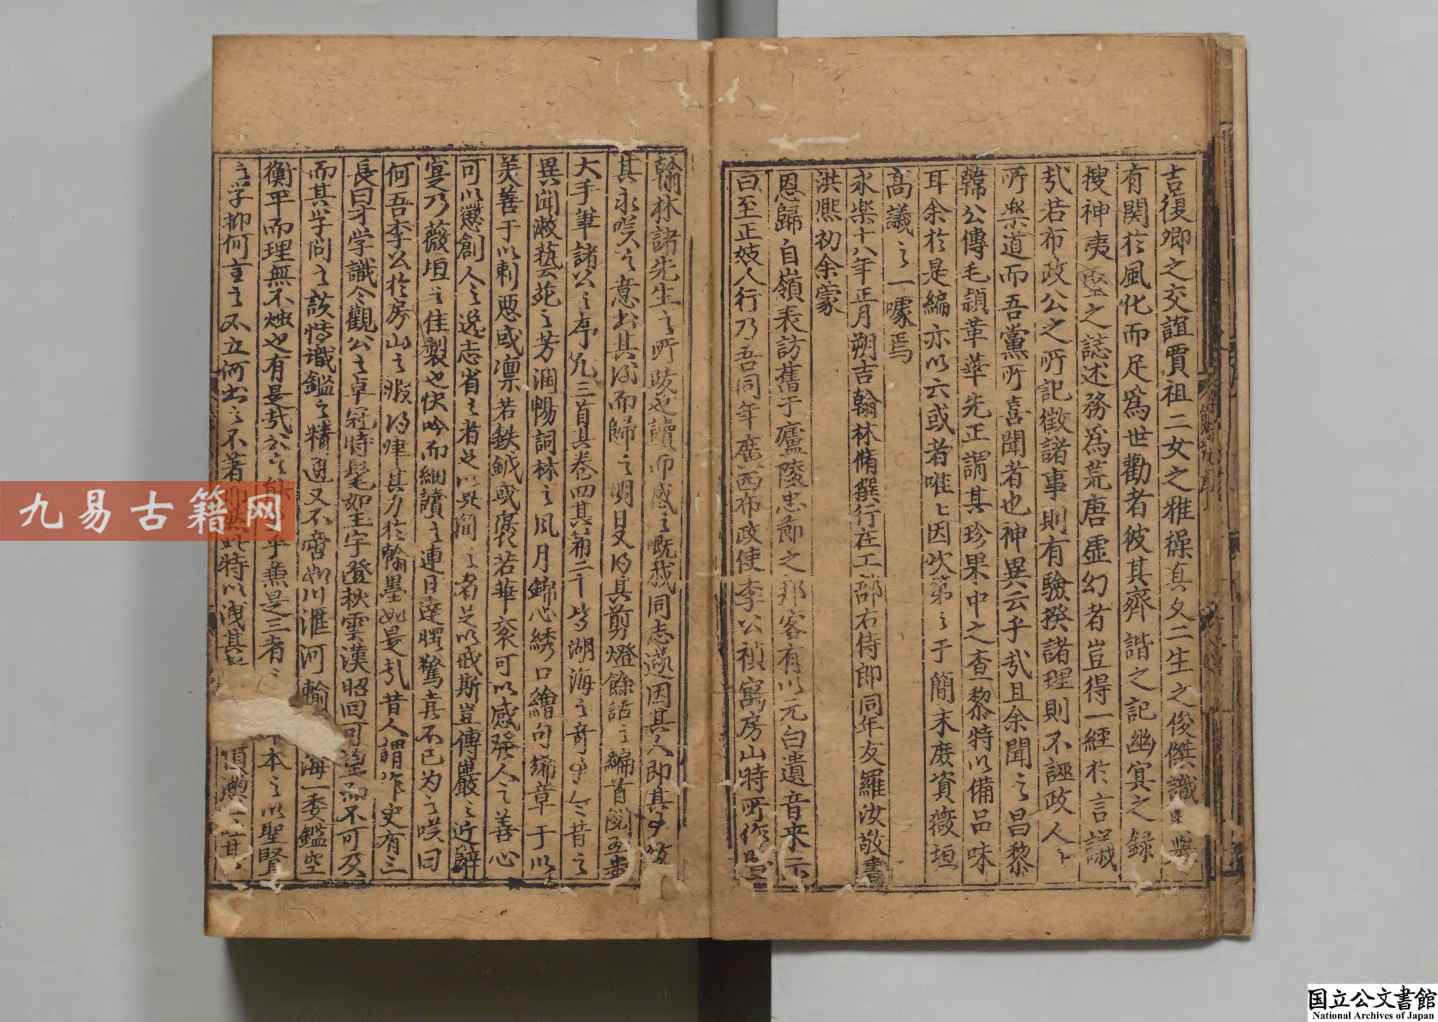 吉復卿之交誼賈祖二女之雅操真文二生之俊傑識
有関於風化而足為世勸者彼其齊諧之記幽冥之録
搜神夷堅之誌述務為荒唐虚幻者豈得一經於言議
㢤若布政公之所記徵諸事則有驗揆諸理則不誣政人〻
所樂道而吾黨所喜聞者也神異云乎㢤且余聞之昌黎
韓公傳毛頴革華先正謂其珍果中之查黎特以備品味
耳余於是編亦以云或者唯〻因次第之于簡末庶資薇垣
高議之一噱焉
永樂十八年正月朔吉翰林脩撰行在工部右侍郎同年友羅汝敬書
洪熈初余蒙
恩歸自嶺表訪舊于廬陵忠節之邦客有以元白遺音来示
曰至正妓人行乃吾同年廣西布政使李公禎寓房山時所作
翰林諸先生之所跋也讀而感之既我同志遂因其人即其
其永咲之意出其後而歸之明日又得其剪燈餘話之編首
大手筆諸公之序凡三首其卷四其第二十皆湖海之奇事今昔之
異聞漱藝苑之芳潤暢詞林之風月錦心綉口繪句絺章于以
美善于以刺惡或凛若鈇鉞或褒若華衮可以感發人之善心
可以懲創人之逸志省之者足以興聞之者足以戒斯豈傳巖之近辭
寔乃薇垣之佳製也快吟而細讀之連日達曙驚喜不已為之咲曰
何吾李公於房山之暇得肆其力於翰墨如是㢤昔人謂作史有三
長曰才學識今觀公之卓冠時髦如玉宇登秋雲漢昭回可望而不可及
而其學問之該博識鑑之精通又不啻如川滙河輸 海一委鑑空
衡平而理無不燭也有是㢤公之 乎兼是三者 本之以聖賢
言學抑何言之不立何出之不著 特以洩其
九易古籍网
国立公文書館
National Archives of Japan